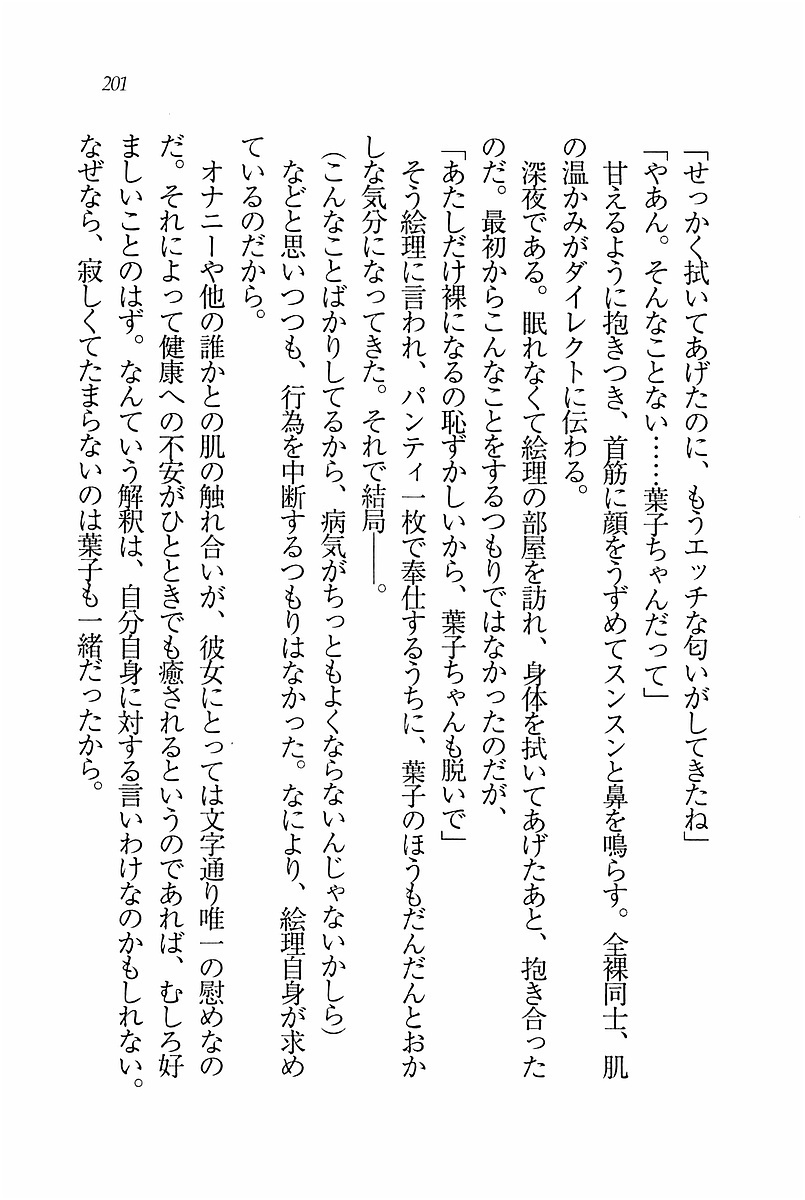 201
「せっかく拭いてあげたのに、もうエッチな匂いがしてきたね」
「やあん。そんなことない……葉子ちゃんだって」
甘えるように抱きつき、首筋に顔をうずめてスンスンと鼻を鳴らす。全裸同士、肌
の温かみがダイレクトに伝わる。
深夜である。眠れなくて絵理の部屋を訪れ、身体を拭いてあげたあと、抱き合った
のだ。最初からこんなことをするつもりではなかったのだが、
「あたしだけ裸になるの恥ずかしいから、葉子ちゃんも脱いで」
そう絵理に言われ、パンティ一枚で奉仕するうちに、葉子のほうもだんだんとおか
しな気分になってきた。それで結局――。
（こんなことばかりしてるから、病気がちっともよくならないんじゃないかしら）
などと思いつつも、行為を中断するつもりはなかった。なにより、絵理自身が求め
ているのだから。
オナニーや他の誰かとの肌の触れ合いが、彼女にとっては文字通り唯一の慰めなの
だ。それによって健康への不安がひとときでも癒されるというのであれば、むしろ好
ましいことのはず。なんていう解釈は、自分自身に対する言いわけなのかもしれない。
なぜなら、寂しくてたまらないのは葉子も一緒だったから。